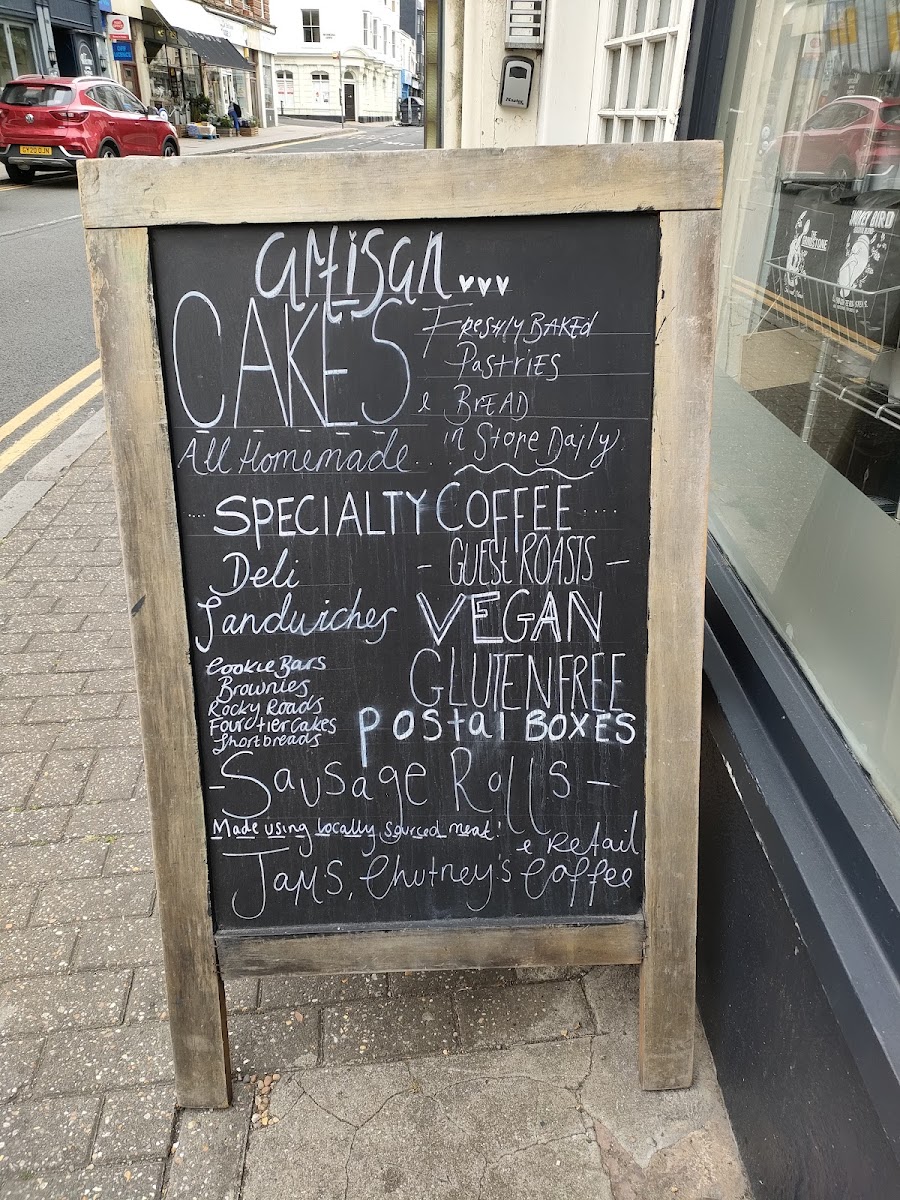 artisan
CAKES
All Homemade...
Freshly BAKED
Pastries
& BREAD
in Store Daily
.... SPECIALTY COFFEE .....
- GUEST ROASTS -
Deli
Sandwiches
VEGAN
GLUTEN FREE
Cookie Bars
Brownies
Rocky Roads
Four tier cakes
Shortbreads
Postal BOXES
- Sausage Rolls -
Made using locally sourced meat!
& Retail
Jams, Chutney's Coffee
GY20 OJN